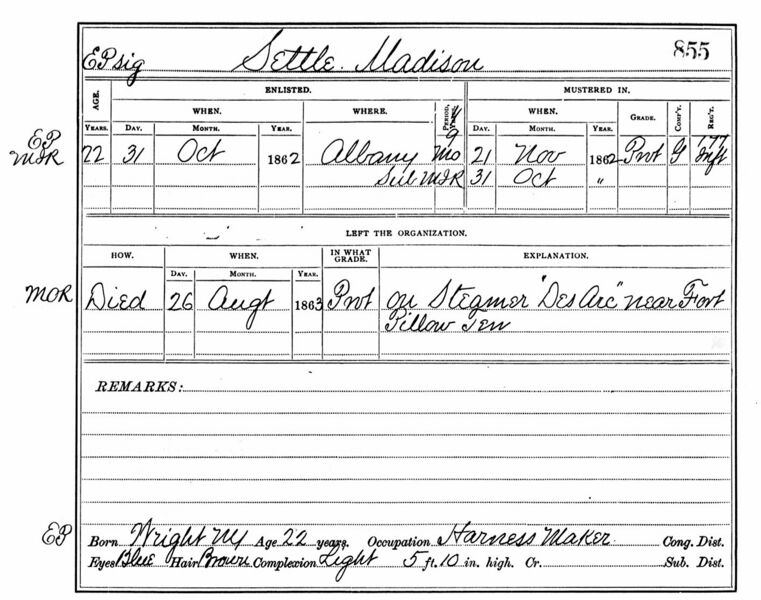 EPsig Settle. Madison 855
AGE. ENLISTED. MUSTERED IN.
WHEN. WHERE. PERIOD, YEARS. 9 WHEN. GRADE. COMP'Y. REG'T.
YEARS. DAY. MONTH. YEAR. DAY. MONTH. YEAR.
EP
MIR 22 31 Oct 1862 Albany Mo 21 Nov 1862 Pvt G 177 Inft
Sul MIR 31 Oct "
LEFT THE ORGANIZATION.
HOW. WHEN. IN WHAT GRADE. EXPLANATION.
DAY. MONTH. YEAR.
MOR Died 26 Augt 1863 Pvt on Steamer "Des Arc" near Fort
Pillow Ten
REMARKS:
EP Born Wright NY Age 22 years. Occupation Harness Maker Cong. Dist.
Eyes Blue Hair Brown Complexion Light 5 ft. 10 in. high. Cr. Sub. Dist.